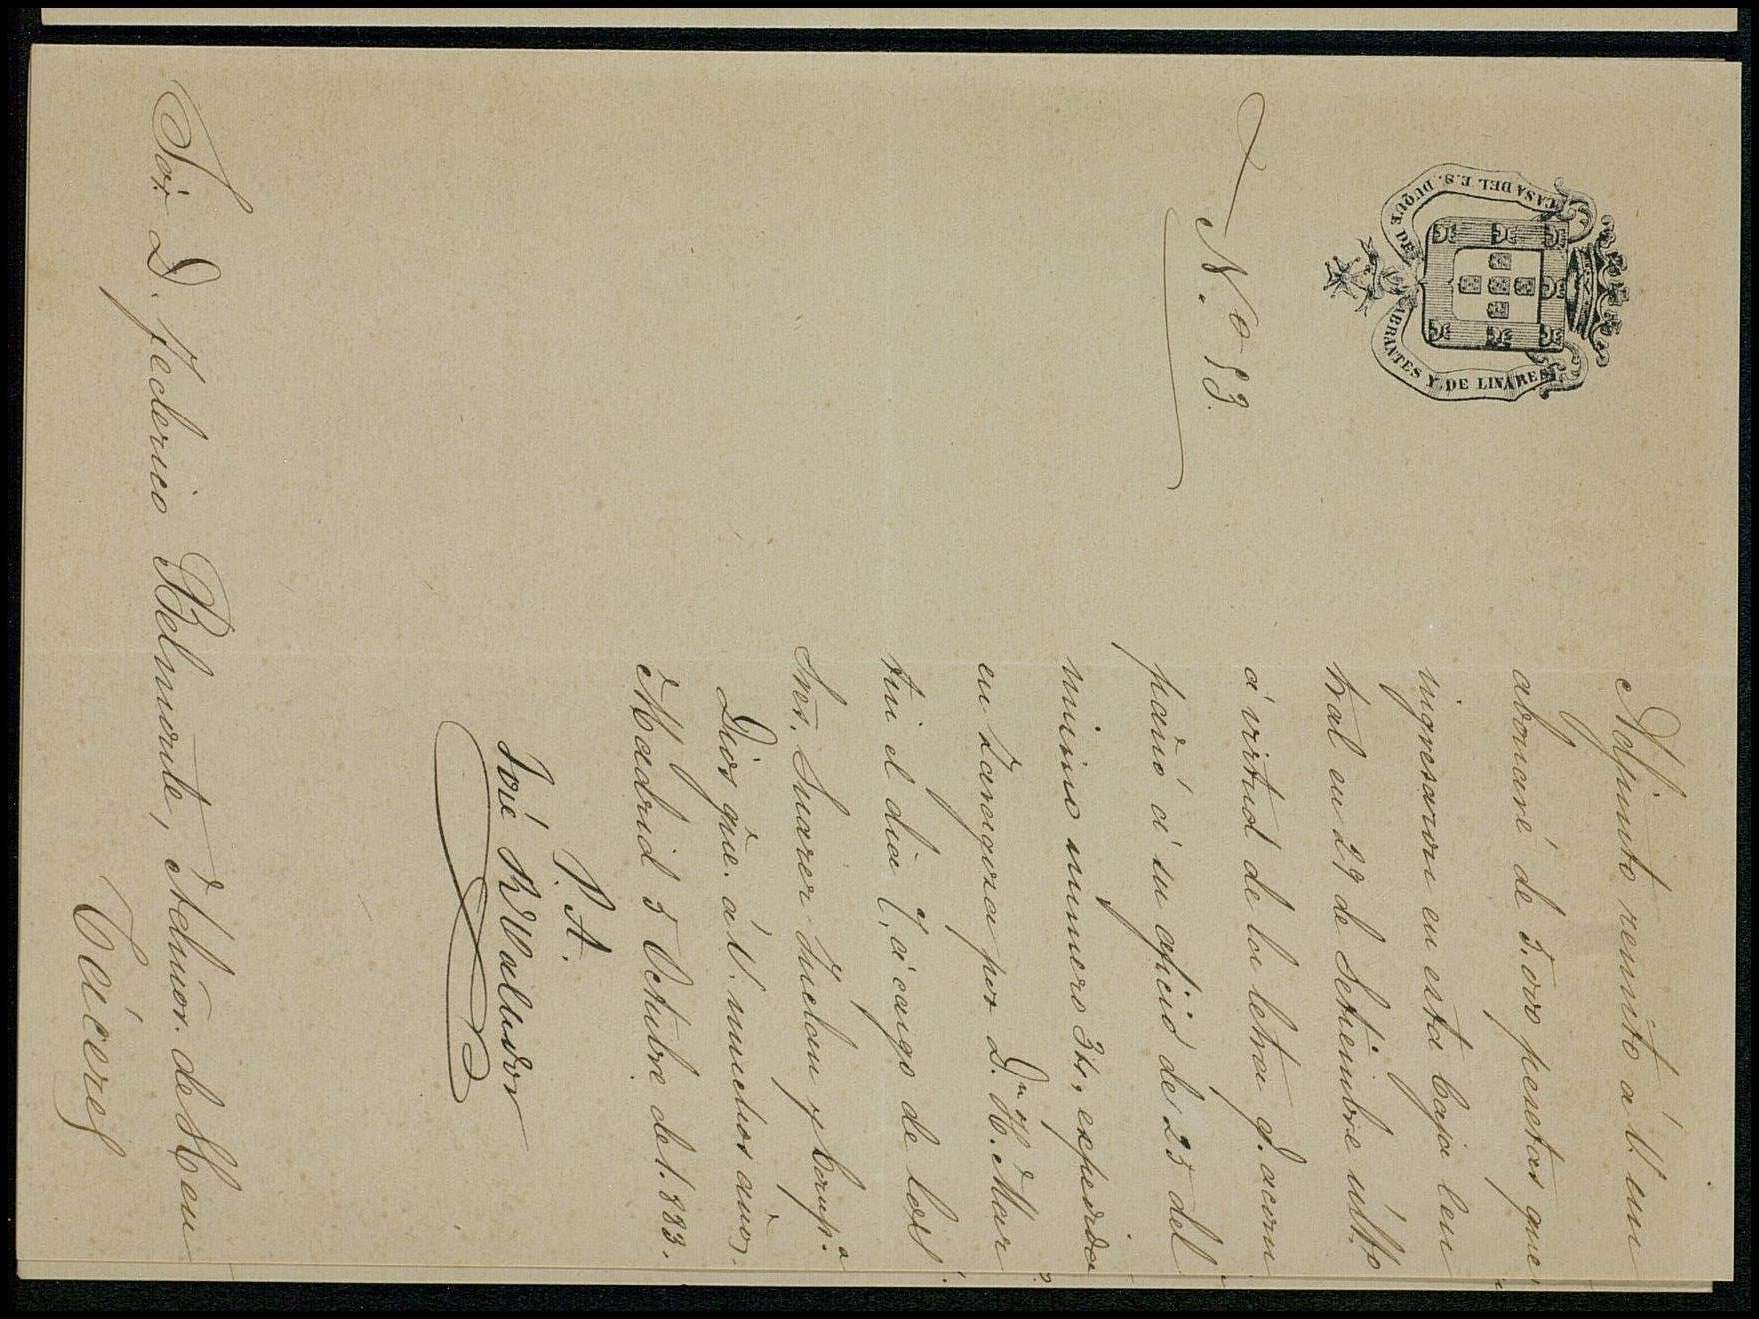 CASA DEL E.S. DUQUE DE ABRANTES Y DE LINARES
N.º 53.
Adjunto remito á V. un
abonaré de 5.000 pesetas que
ingresaron en esta Caja Cen
tral en 29 de Setiembre últº
á virtud de la letra q. acom
pañó á su oficio de 25 del
mismo número 34, expedida
en Zaragoza por D.n M. Mar
tin el dia á cargo de los
Sres. Suarez Inclan y Comp.ª
Dios gue. á V. muchos años.
Madrid 5 Octubre de 1.883.
P. A.
José
Sor. D. Federico Belmonte, Admor. de
Cáceres